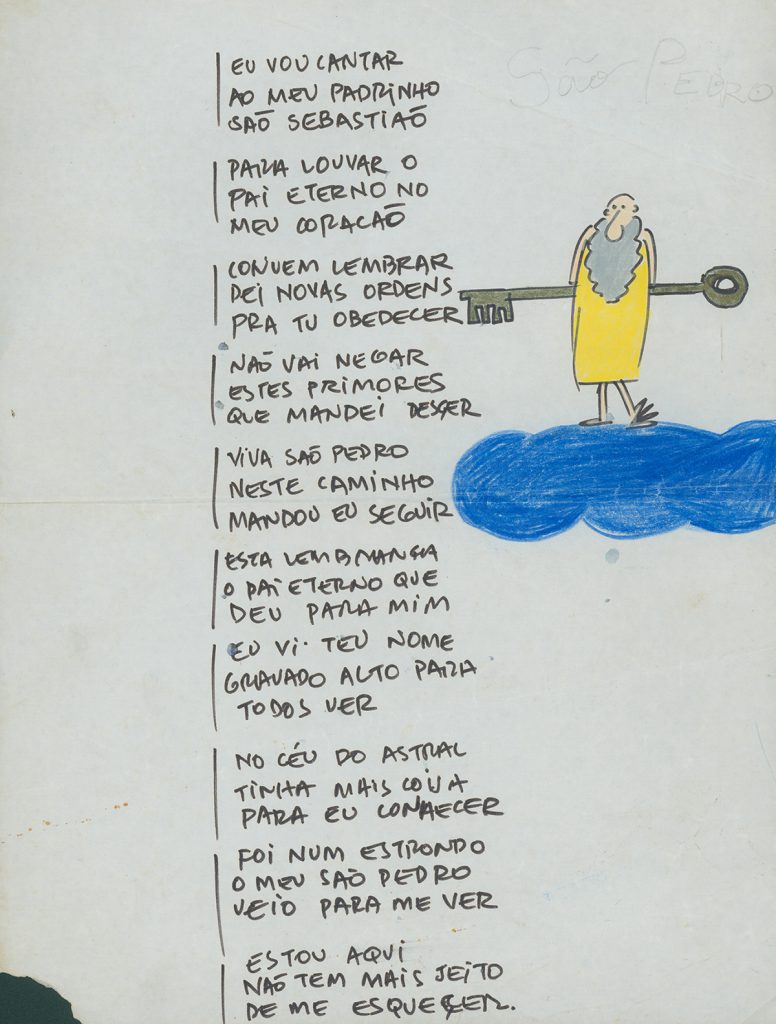 São Pedro
EU VOU CANTAR
AO MEU PADRINHO
SAÕ SEBASTIAÕ
PARA LOUVAR O
PAI ETERNO NO
MEU CORACAÕ
CONVEM LEMBRAR
DEI NOVAS ORDENS
PRA TU OBEDECER
NAÕ VAI NEGAR
ESTES PRIMORES
QUE MANDEI DESÇER
VIVA SAÕ PEDRO
NESTE CAMINHO
MANDOU EU SEGUIR
ESTA LEMBRANÇA
O PAI ETERNO QUE
DEU PARA MIM
EU VI TEU NOME
GRAVADO ALTO PARA
TODOS VER
NO CÉU DO ASTRAL
TINHA MAIS COISA
PARA EU CONHECER
FOI NUM ESTRONDO
O MEU SAÕ PEDRO
VEIO PARA ME VER
ESTOU AQUI
NAÕ TEM MAIS JEITO
DE ME ESQUEÇER.